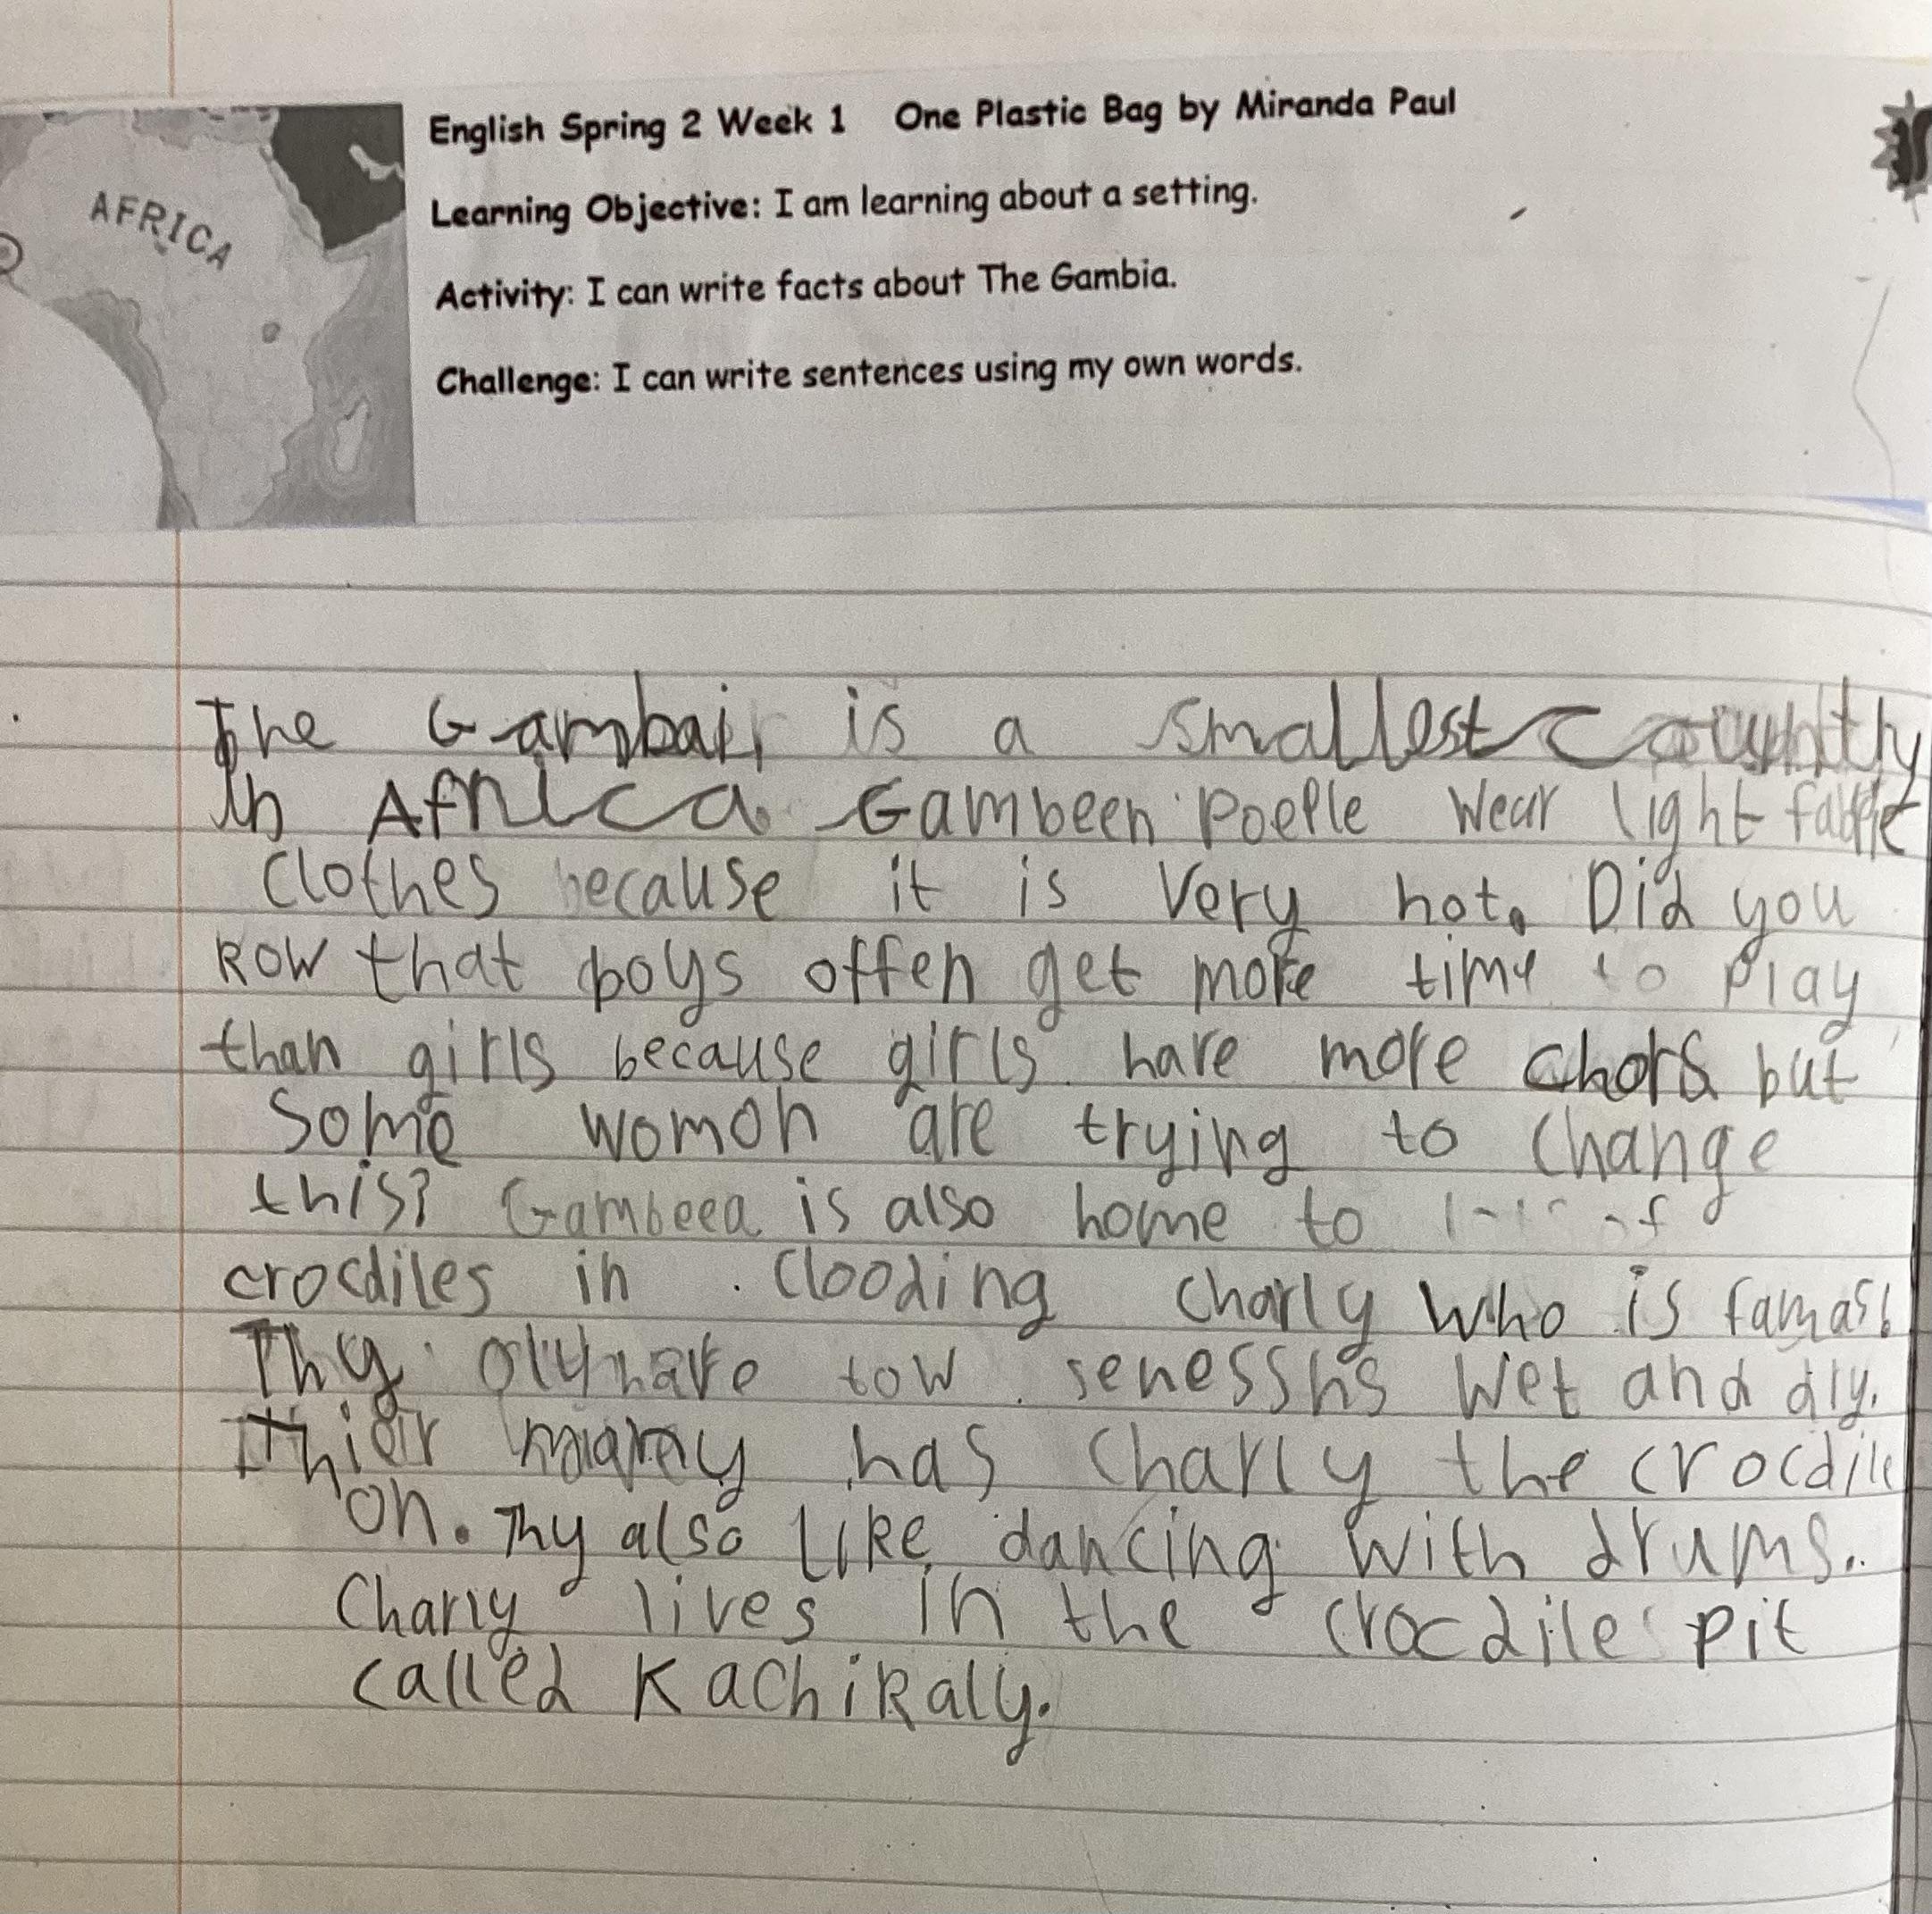 AFRICA
English Spring 2 Week 1 One Plastic Bag by Miranda Paul
Learning Objective: I am learning about a setting.
Activity: I can write facts about The Gambia.
Challenge: I can write sentences using my own words.
The Gambai is a smallest
in Africa. Gambeen poeple wear light
clothes because it is very hot. Did you
kow that boys offen get more time to play
than girls because girls have more chors but
some womon are trying to change
this? Gambeea is also home to
crocdiles in clooding charly who is famas!
Thy oly have tow senesshs wet and dry.
Thier has Charly the crocdile
on. Thy also like dancing with drums.
Charly lives in the crocdile pit
called Kachikaly.